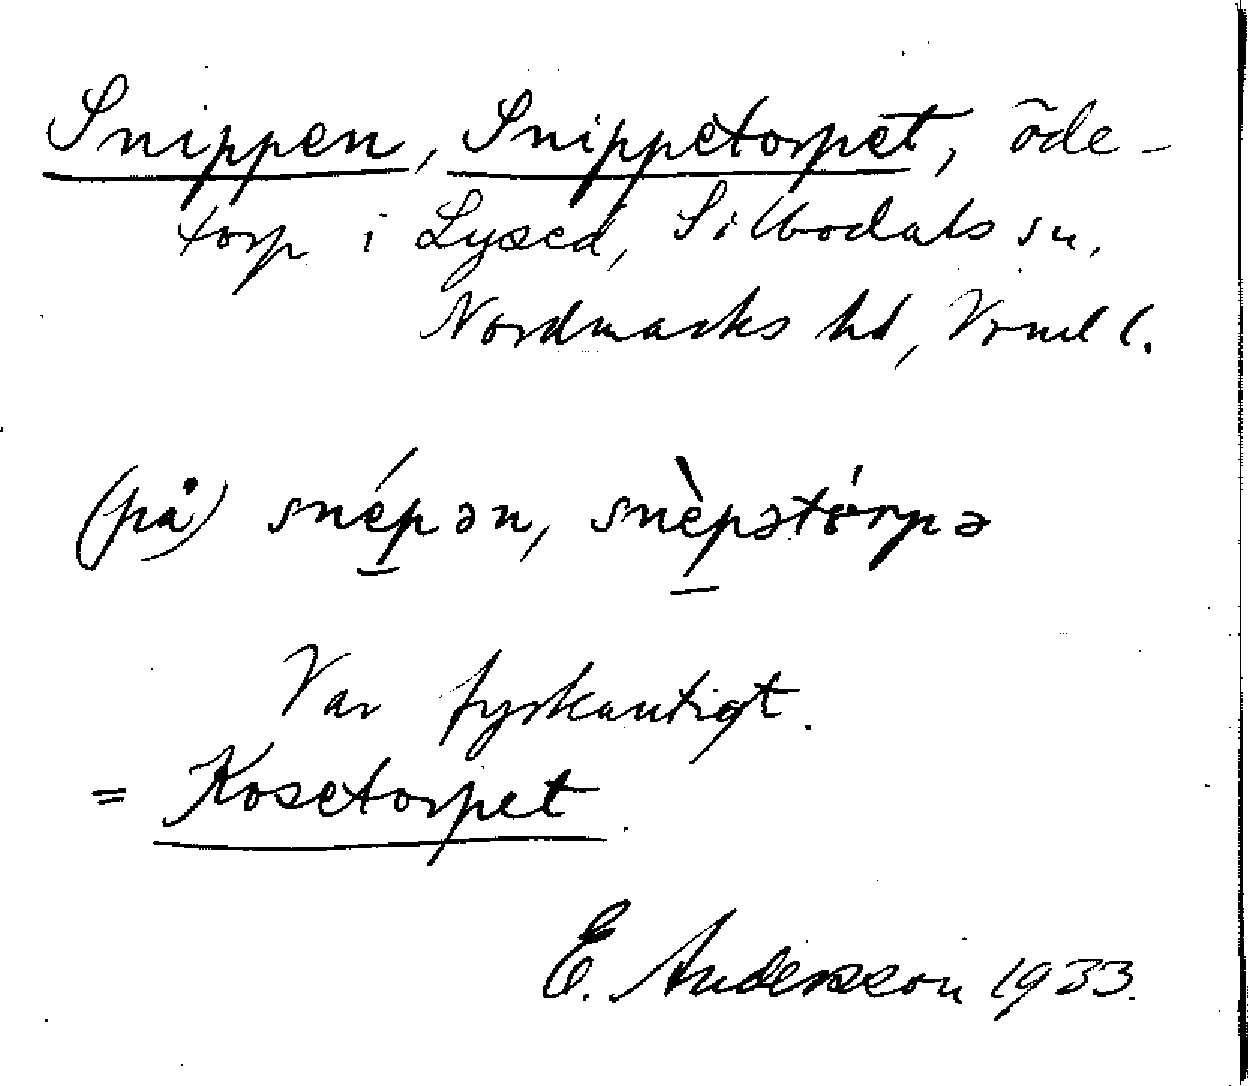 Snippen, Snippetorpet, öde-
torp i Lysed, Silbodals sn,
Nordmarks hd, Vrml l.
(på) snépən, snèpətórpə
Var fyrkantigt.
= Kosetorpet
E. Andersson 1933.